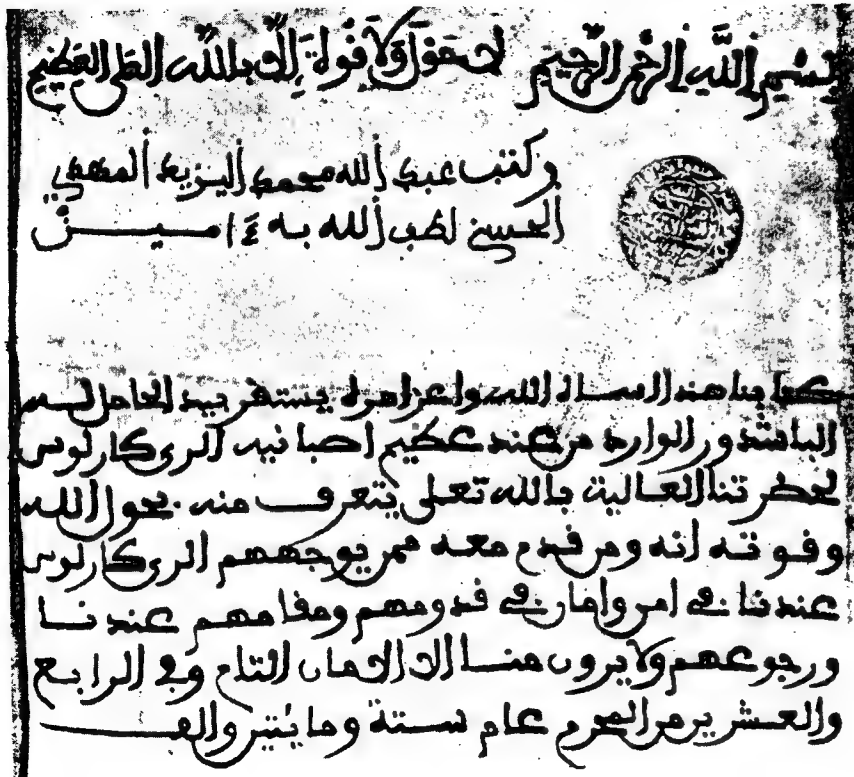 بسم الله الرحمن الرحيم لا حول ولا قوة إلا بالله العلي العظيم
وكتب عبد الله محمد اليزيد المهدي
الحسني لطف الله به ءامين
كتابنا هذا اسماه الله واعز امره يستقر بيد الحامل له
الباشدور الوارد من عند عظيم اصبانيه الري كارلوس
لحضرتنا العالية بالله تعلى يتعرف منه بحول الله
وقوته انه ومن قدم معه ممن يوجههم الري كارلوس
عندنا في امن وامان في قدومهم ومقامهم عندنا
ورجوعهم ولا يرون منا الا الامان التام وفي الرابع
والعشرين من المحرم عام ستة ومايتين والف